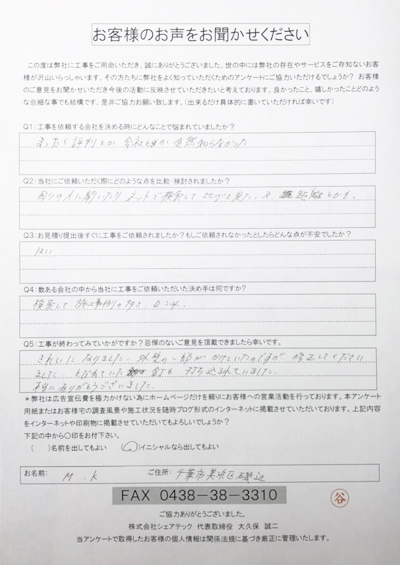 お客様のお声をお聞かせください
この度は弊社に工事をご用命いただき、誠にありがとうございました。世の中には弊社の存在やサービスをご存知ないお客
様が沢山いらっしゃいます。その方たちに弊社をよく知っていただくためのアンケートにご協力いただけるでしょうか？ お客様
のご意見をお聞かせいただき今後の活動に反映させていただきたいと考えております。良かったこと、嬉しかったことどのよう
な些細な事でも結構です。是非ご協力お願い致します。（出来るだけ具体的に書いていただければ幸いです）
Q1：工事を依頼する会社を決める時にどんなことで悩まれていましたか？
まったく評判とか会社とかが全然知らなかった
Q2：当社にご依頼いただく際にどのような点を比較・検討されましたか？
周りの人に聞いたり ネットで検索して
Q3：お見積り提出後すぐに工事をご依頼されましたか？もしご依頼されなかったとしたらどんな点が不安でしたか？
はい
Q4：数ある会社の中から当社に工事をご依頼いただいた決め手は何ですか？
検索して 施工事例の多さ、口コミ
Q5：工事が終わってみていかがですか？忌憚のないご意見を頂戴できましたら幸いです。
きれいになりました。外壁の一部がかけていたのですが 修正してください
ました。とれていた 釘も 打ち込まれていました。
本当にありがとうございました。
＊弊社は広告宣伝費を極力かけない為にホームページだけを頼りにお客様への営業活動を行っております。本アンケート
用紙またはお客様宅の調査風景や施工状況を随時ブログ形式のインターネットに掲載させていただいております。上記内容
をインターネットや印刷物に掲載させていただいてもよろしいでしょうか？
下記の中から〇印をお付下さい。
（ ）名前を出してもよい （〇）イニシャルなら出してもよい
お名前： M.K ご住所： 千葉市美浜区磯辺
FAX 0438-38-3310
谷
ご協力ありがとうございました。
株式会社シェアテック 代表取締役 大久保 誠二
当アンケートで取得したお客様の個人情報は関係法規に基づき厳正に管理いたします。